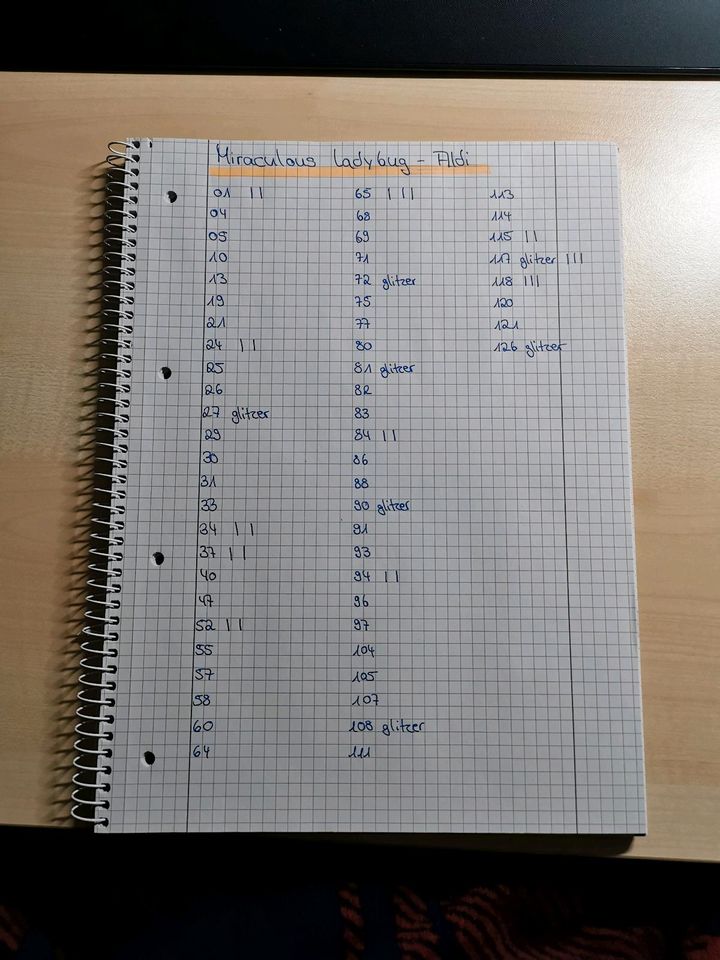 Miraculous Ladybug - Aldi
01 ||
04
05
10
13
19
21
24 ||
25
26
27 glitzer
29
30
31
33
34 ||
37 ||
40
47
52 ||
55
57
58
60
64
65 |||
68
69
71
72 glitzer
75
77
80
81 glitzer
82
83
84 ||
86
88
90 glitzer
91
93
94 ||
96
97
104
105
107
108 glitzer
111
113
114
115 ||
117 glitzer |||
118 |||
120
121
126 glitzer